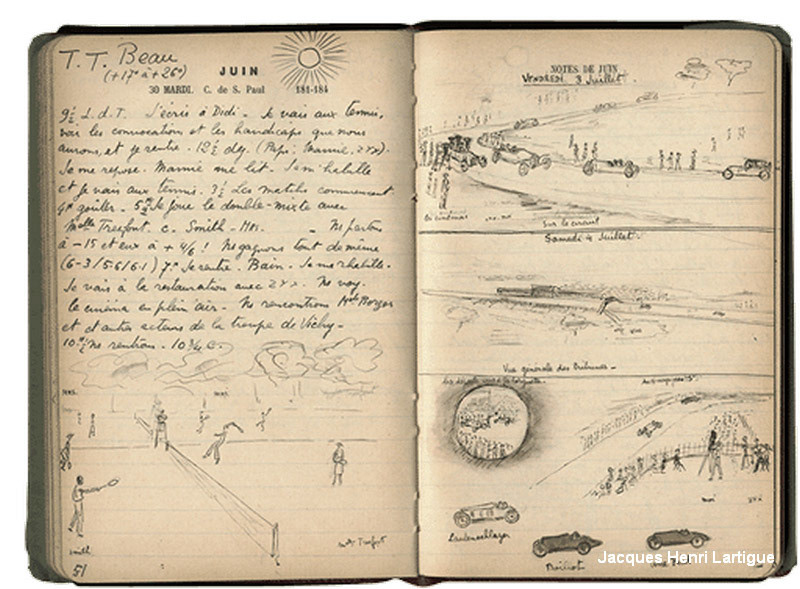 T. T. Beau
(+17° à +26°)
JUIN
30 MARDI. C. de S. Paul 181-184
9½ L.d.T. J'écris à Didi - Je vais aux tennis,
voir les convocations et les handicaps que nous
aurons, et je rentre. 12½ dej. (Papi. Mamie. ZYX).
Je me repose. Mamie me lit. Je m'habille
et je vais aux tennis. 3½ Les matchs commencent.
goûter. Je joue le double-mixte avec
Melle C. Smith -
à -15 et eux à + 4/6 ! Ne gagnons tout de même
(6-3/5-6/6-1) 7h Je rentre. Bain. Je me rhabille.
Je vais à la restauration avec ZYX. Ne voy.
le cinéma en plein air. Ne rencontrons
et d'autres acteurs de la troupe de Vichy -
Ne rentrons. 10¾
moi
Smith
51
NOTES DE JUIN
VENDREDI 3 Juillet.
Sur le circuit
Samedi 4 Juillet.
Vue générale des Tribunes -
moi ZYX
Lautenschlager
Boillot
Jacques Henri Lartigue